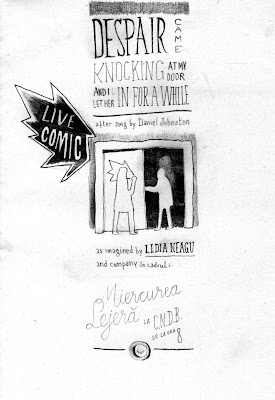 DESPAIR CAME
KNOCKING AT MY DOOR
AND I LET HER IN FOR A WHILE
after song by Daniel Johnston
LIVE COMIC
as imagined by LIDIA NEAGU
and company în cadrul:
Miercurea
Lejeră LA C.N.D.B.
DE LA ORA 8